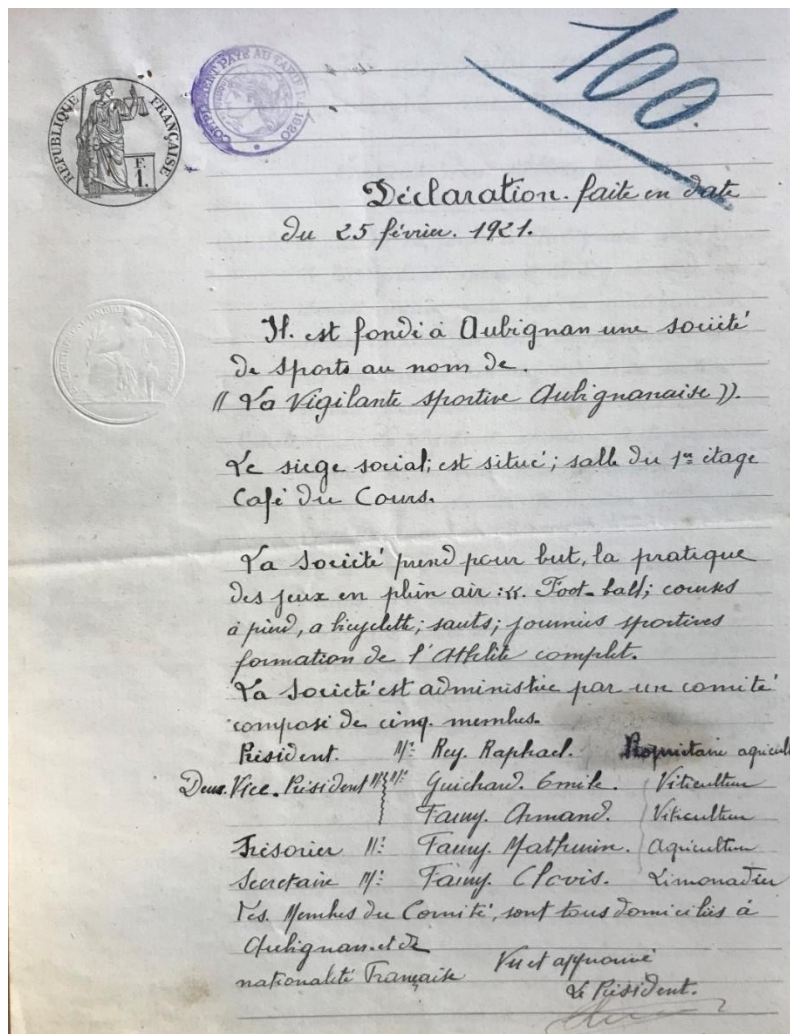 100
RÉPUBLIQUE FRANÇAISE
F.
1.
COMPLÉMENT PAYÉ AU TARIF DE 1920
Déclaration. faite en date
du 25 février. 1921.
Il. est fondé à Aubignan une société
de Sports au nom de.
(( La Vigilante sportive Aubignanaise )).
Le siege social; est situé; salle du 1er étage
Café du Cours.
La Société prend pour but, la pratique
des jeux en plein air :«. Foot-ball; courses
à pied, a bicyclette; sauts; journées sportives
formation de l'Athlète complet.
La Société est administrée par un comité
composé de cinq. membres.
Président. Mr. Rey. Raphael. Propriétaire agricult
Deux. Vice. Président Mr. Guichard. Emile. Viticulteur
Faury. Armand. Viticulteur
Trésorier Mr. Faury. Mathurin. Agriculteur
Secretaire Mr. Faury. Clovis. Limonadier
Les. Membres du Comité, sont tous domiciliés à
Aubignan. et de
nationalité Française Vu et approuvé
Le Président.